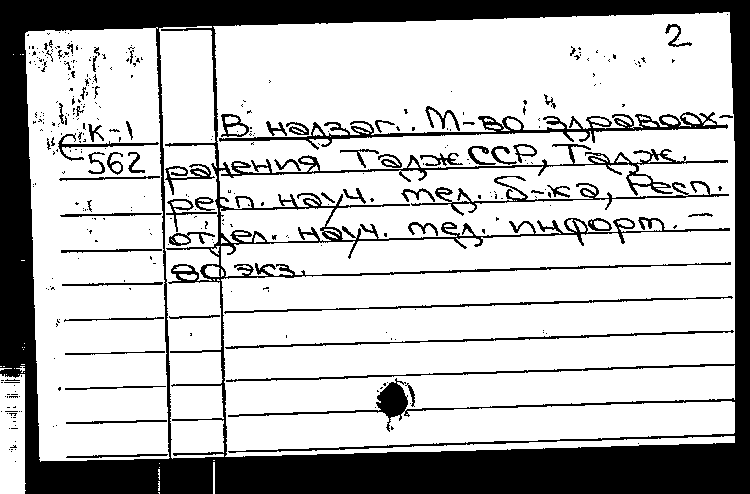 2
К-1 В надзаг.: М-во здравоох-
С 562 ранения ТаджССР, Тадж.
респ. науч. мед. б-ка, Респ.
отдел. науч. мед. информ. –
80 экз.